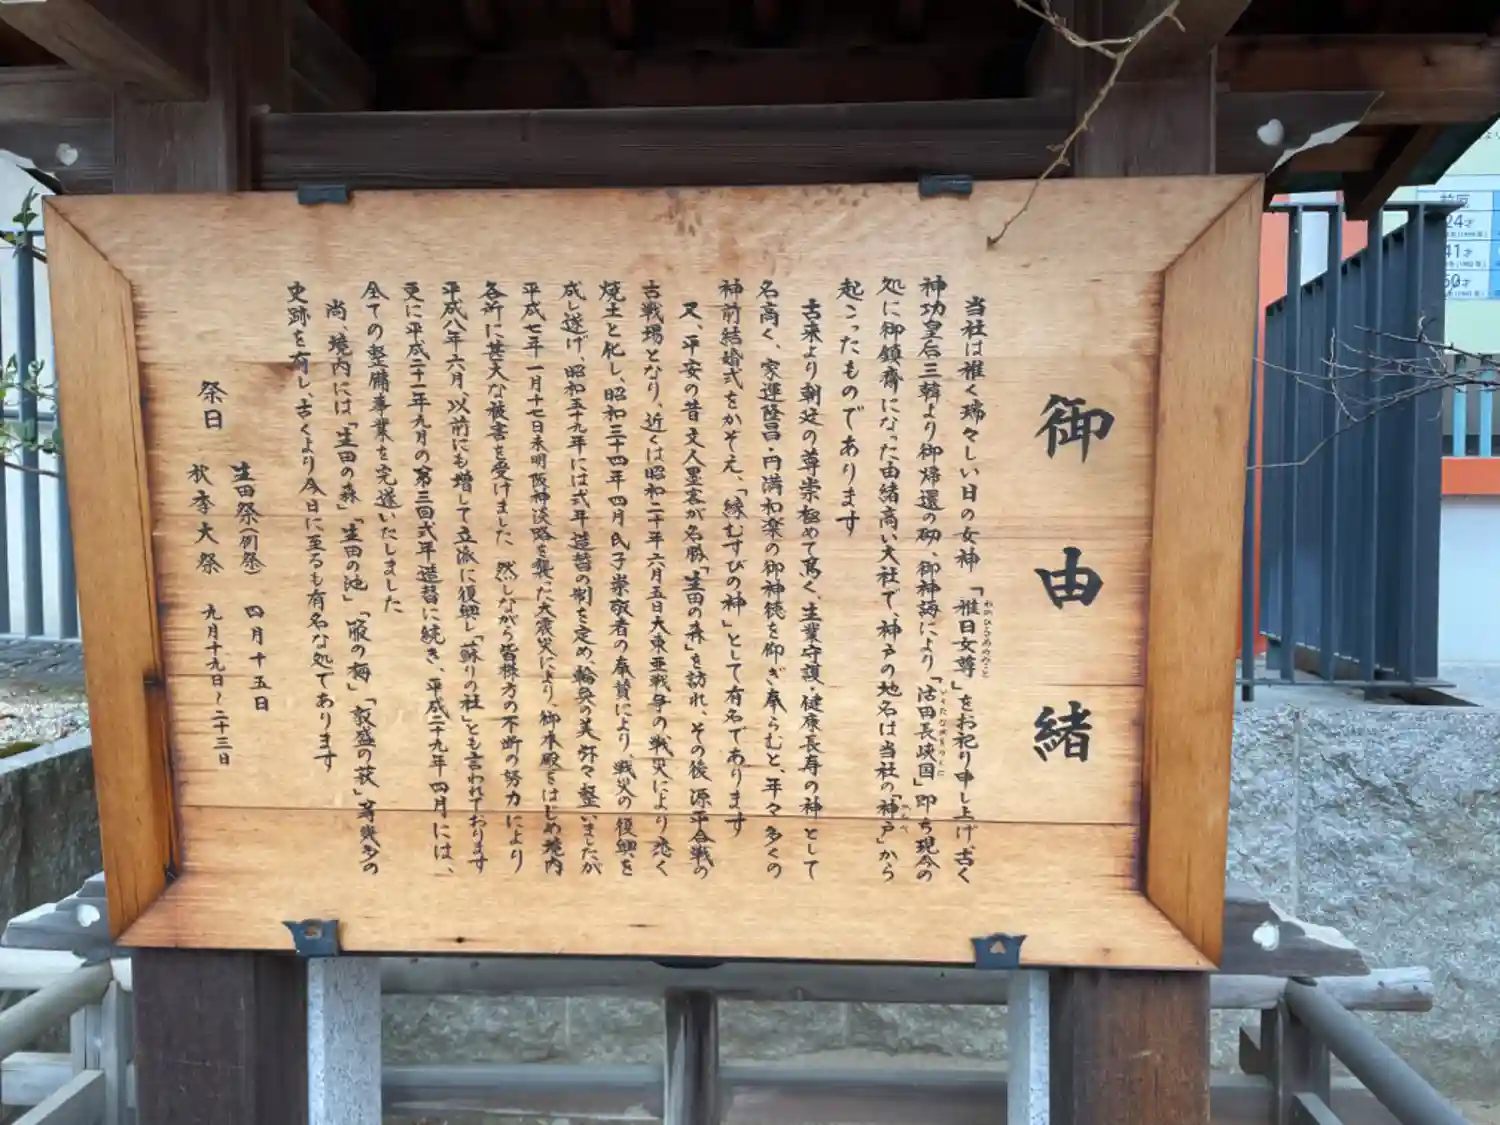 御由緒
当社は稚く瑞々しい日の女神「稚日女尊」をお祀り申し上げ、古く
わかひるめのみこと
神功皇后三韓より御帰還の砌、御神誨により「活田長峡国」即ち現今の
いくたながをのくに
処に御鎮斎になった由緒高い大社で、神戸の地名は当社の「神戸」から
かんべ
起こったものであります
古来より朝廷の尊崇極めて篤く、生業守護・健康長寿の神として
名高く、家運隆昌・円満和楽の御神徳を仰ぎ奉らむと、年々多くの
神前結婚式をかぞえ、「縁むすびの神」として有名であります
又、平安の昔文人墨客が名勝「生田の森」を訪れ、その後源平合戦の
古戦場となり、近くは昭和二十年六月五日大東亜戦争の戦災により悉く
焼土と化し、昭和三十四年四月氏子崇敬者の奉賛により、戦災の復興を
成し遂げ、昭和五十九年には式年造替の制を定め、輪奐の美弥々整いましたが
平成七年一月十七日未明阪神淡路を襲った大震災により、御本殿をはじめ境内
各所に甚大な被害を受けました 然しながら皆様方の不断の努力により
平成八年六月、以前にも増して立派に復興し「蘇りの社」とも言われております
更に平成二十一年九月の第三回式年造替に続き、平成二十九年四月には、
全ての整備事業を完遂いたしました
尚、境内には「生田の森」「生田の池」「箙の梅」「敦盛の萩」等幾多の
史跡を有し、古くより今日に至るも有名な処であります
祭日 生田祭(例祭) 四月十五日
秋季大祭 九月十九日〜二十三日
24才
41才
60才